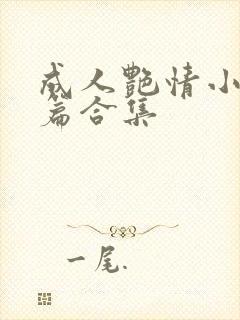 成人艷情小
篇合集
一尾.